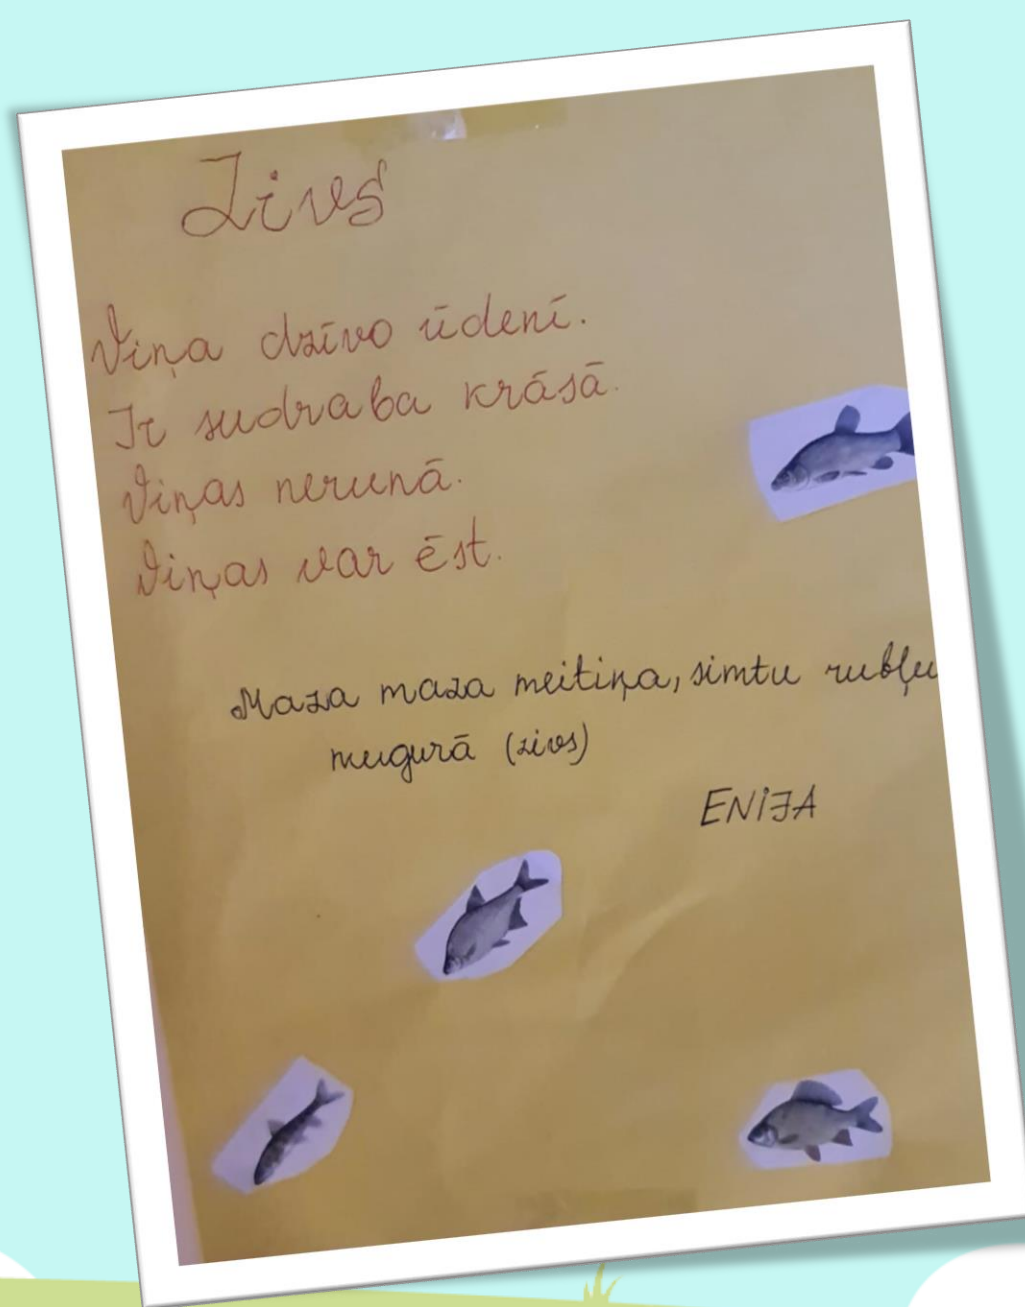 Zivs
Viņa dzīvo ūdenī.
Ir sudraba krāsā.
Viņas nerunā.
Viņas var ēst.
Maza maza meitiņa, simtu rubļu
mugurā (zivs)
ENIJA